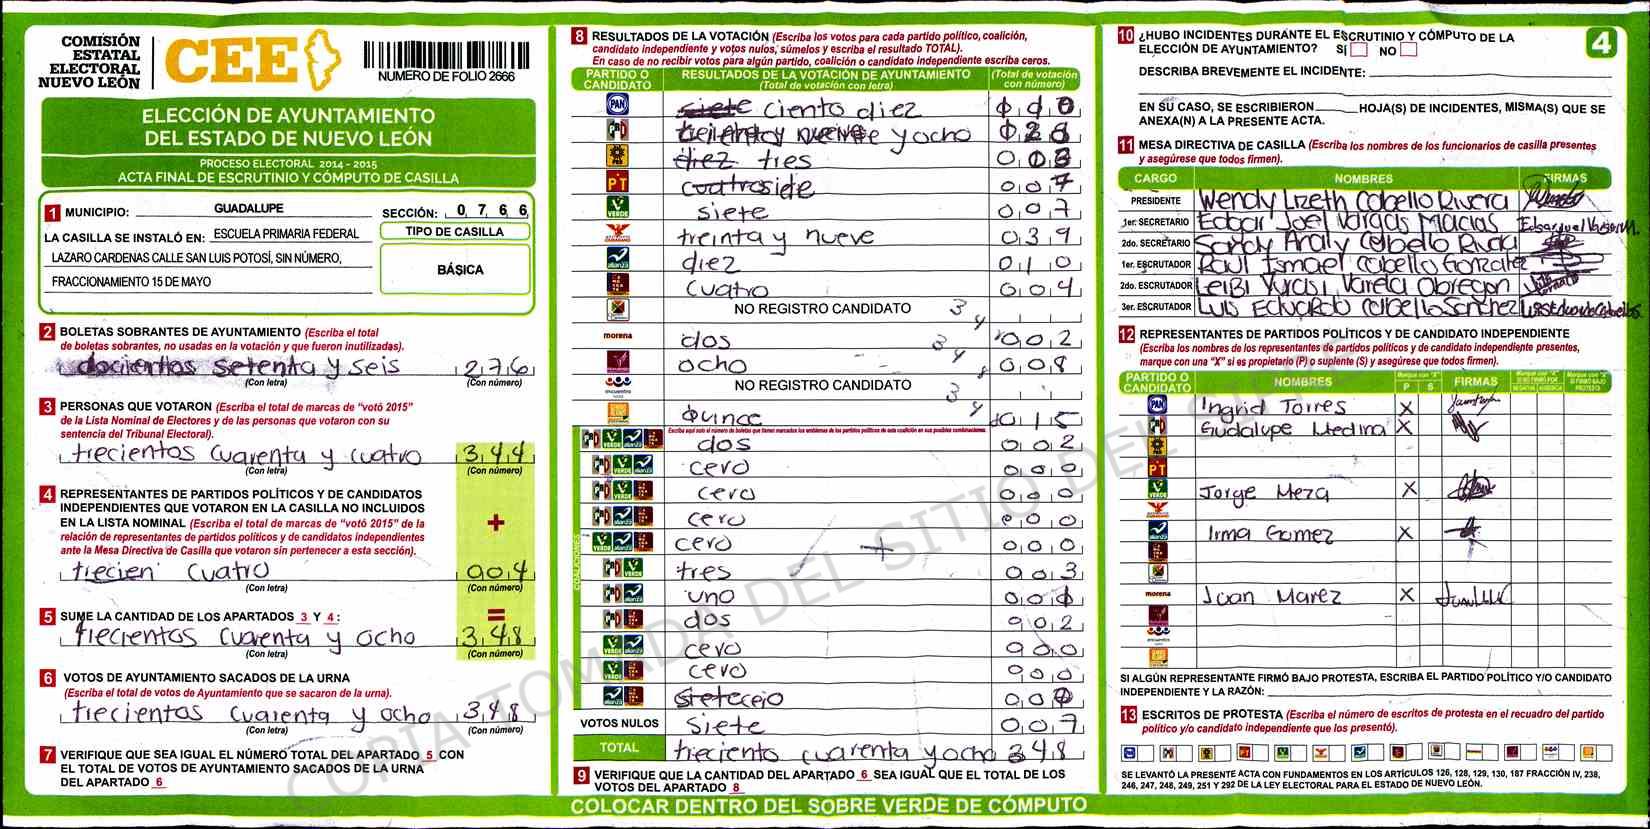 COMISIÓN
ESTATAL
ELECTORAL
NUEVO LEÓN
CEE
NUMERO DE FOLIO 2666
ELECCIÓN DE AYUNTAMIENTO
DEL ESTADO DE NUEVO LEÓN
PROCESO ELECTORAL 2014 - 2015
ACTA FINAL DE ESCRUTINIO Y CÓMPUTO DE CASILLA
1 MUNICIPIO: GUADALUPE SECCIÓN: 0,7,6,6
LA CASILLA SE INSTALÓ EN: ESCUELA PRIMARIA FEDERAL
LAZARO CARDENAS CALLE SAN LUIS POTOSÍ, SIN NÚMERO,
FRACCIONAMIENTO 15 DE MAYO
TIPO DE CASILLA
BÁSICA
2 BOLETAS SOBRANTES DE AYUNTAMIENTO (Escriba el total
de boletas sobrantes, no usadas en la votación y que fueron inutilizadas).
docientos setenta y seis 2,7,6
(Con letra) (Con número)
3 PERSONAS QUE VOTARON (Escriba el total de marcas de "votó 2015"
de la Lista Nominal de Electores y de las personas que votaron con su
sentencia del Tribunal Electoral).
trecientos cuarenta y cuatro 3,4,4
(Con letra) (Con número)
4 REPRESENTANTES DE PARTIDOS POLÍTICOS Y DE CANDIDATOS
INDEPENDIENTES QUE VOTARON EN LA CASILLA NO INCLUIDOS
EN LA LISTA NOMINAL (Escriba el total de marcas de "votó 2015" de la
relación de representantes de partidos políticos y de candidatos independientes
ante la Mesa Directiva de Casilla que votaron sin pertenecer a esta sección).
+
trecien cuatro 0,0,4
(Con letra) (Con número)
5 SUME LA CANTIDAD DE LOS APARTADOS 3 Y 4: =
trecientos cuarenta y ocho 3,4,8
(Con letra) (Con número)
6 VOTOS DE AYUNTAMIENTO SACADOS DE LA URNA
(Escriba el total de votos de Ayuntamiento que se sacaron de la urna).
trecientos cuarenta y ocho 3,4,8
(Con letra) (Con número)
7 VERIFIQUE QUE SEA IGUAL EL NÚMERO TOTAL DEL APARTADO 5 CON
EL TOTAL DE VOTOS DE AYUNTAMIENTO SACADOS DE LA URNA
DEL APARTADO 6
8 RESULTADOS DE LA VOTACIÓN (Escriba los votos para cada partido político, coalición,
candidato independiente y votos nulos, súmelos y escriba el resultado TOTAL).
En caso de no recibir votos para algún partido, coalición o candidato independiente escriba ceros.
PARTIDO O CANDIDATO RESULTADOS DE LA VOTACIÓN DE AYUNTAMIENTO (Total de votación con letra) (Total de votación con número)
PAN siete ciento diez 1,1,0
PRD y ocho
PRD diez tres 0,0,3
PT cuatro siete 0,0,7
VERDE siete 0,0,7
treinta y nueve 0,3,9
alianza diez 0,1,0
cuatro 0,0,4
NO REGISTRO CANDIDATO 3 4
morena dos 3 4 0,0,2
ocho 0,0,8
NO REGISTRO CANDIDATO 3 4
quince 0,1,5
Escriba aquí solo el número de boletas que tienen marcados los emblemas de los partidos políticos de esta coalición en sus posibles combinaciones.
COALICIONES
dos 0,0,2
cero 0,0,0
cero 0,0,0
cero 0,0,0
cero 0,0,0
tres 0,0,3
uno 0,0,1
dos 0,0,2
cero 0,0,0
cero 0,0,0
siete cero 0,0,0
VOTOS NULOS siete 0,0,7
TOTAL treciento cuarenta y ocho 3,4,8
9 VERIFIQUE QUE LA CANTIDAD DEL APARTADO 6 SEA IGUAL QUE EL TOTAL DE LOS
VOTOS DEL APARTADO 8
COLOCAR DENTRO DEL SOBRE VERDE DE CÓMPUTO
10 ¿HUBO INCIDENTES DURANTE EL ESCRUTINIO Y CÓMPUTO DE LA
ELECCIÓN DE AYUNTAMIENTO? SÍ NO
4
DESCRIBA BREVEMENTE EL INCIDENTE:
EN SU CASO, SE ESCRIBIERON HOJA(S) DE INCIDENTES, MISMA(S) QUE SE
ANEXA(N) A LA PRESENTE ACTA.
11 MESA DIRECTIVA DE CASILLA (Escriba los nombres de los funcionarios de casilla presentes
y asegúrese que todos firmen).
CARGO NOMBRES FIRMAS
PRESIDENTE Wendy Lizeth Cabello Rivera
1er. SECRETARIO Edgar Joel Vargas Macias Edgar Joel Vargas M.
2do. SECRETARIO Sandy Analy Cabello Rivera
1er. ESCRUTADOR Raul Ismael Cabello Gonzalez
2do. ESCRUTADOR Leibi Yurasi Varela Obregon
3er. ESCRUTADOR Luis Eduardo Cabello Sanchez
12 REPRESENTANTES DE PARTIDOS POLÍTICOS Y DE CANDIDATO INDEPENDIENTE
(Escriba los nombres de los representantes de partidos políticos y de candidato independiente presentes,
marque con una "X" si es propietario (P) o suplente (S) y asegúrese que todos firmen).
PARTIDO O CANDIDATO NOMBRES Marque con "X" P S FIRMAS
PAN Ingrid Torres X
Guadalupe Medina X
PRD
PT
VERDE Jorge Meza X
alianza Irma Gomez X
morena Juan Marez X
SI ALGÚN REPRESENTANTE FIRMÓ BAJO PROTESTA, ESCRIBA EL PARTIDO POLÍTICO Y/O CANDIDATO
INDEPENDIENTE Y LA RAZÓN:
13 ESCRITOS DE PROTESTA (Escriba el número de escritos de protesta en el recuadro del partido
político y/o candidato independiente que los presentó).
SE LEVANTÓ LA PRESENTE ACTA CON FUNDAMENTOS EN LOS ARTÍCULOS 126, 128, 129, 130, 187 FRACCIÓN IV, 238,
246, 247, 248, 249, 251 Y 292 DE LA LEY ELECTORAL PARA EL ESTADO DE NUEVO LEÓN.